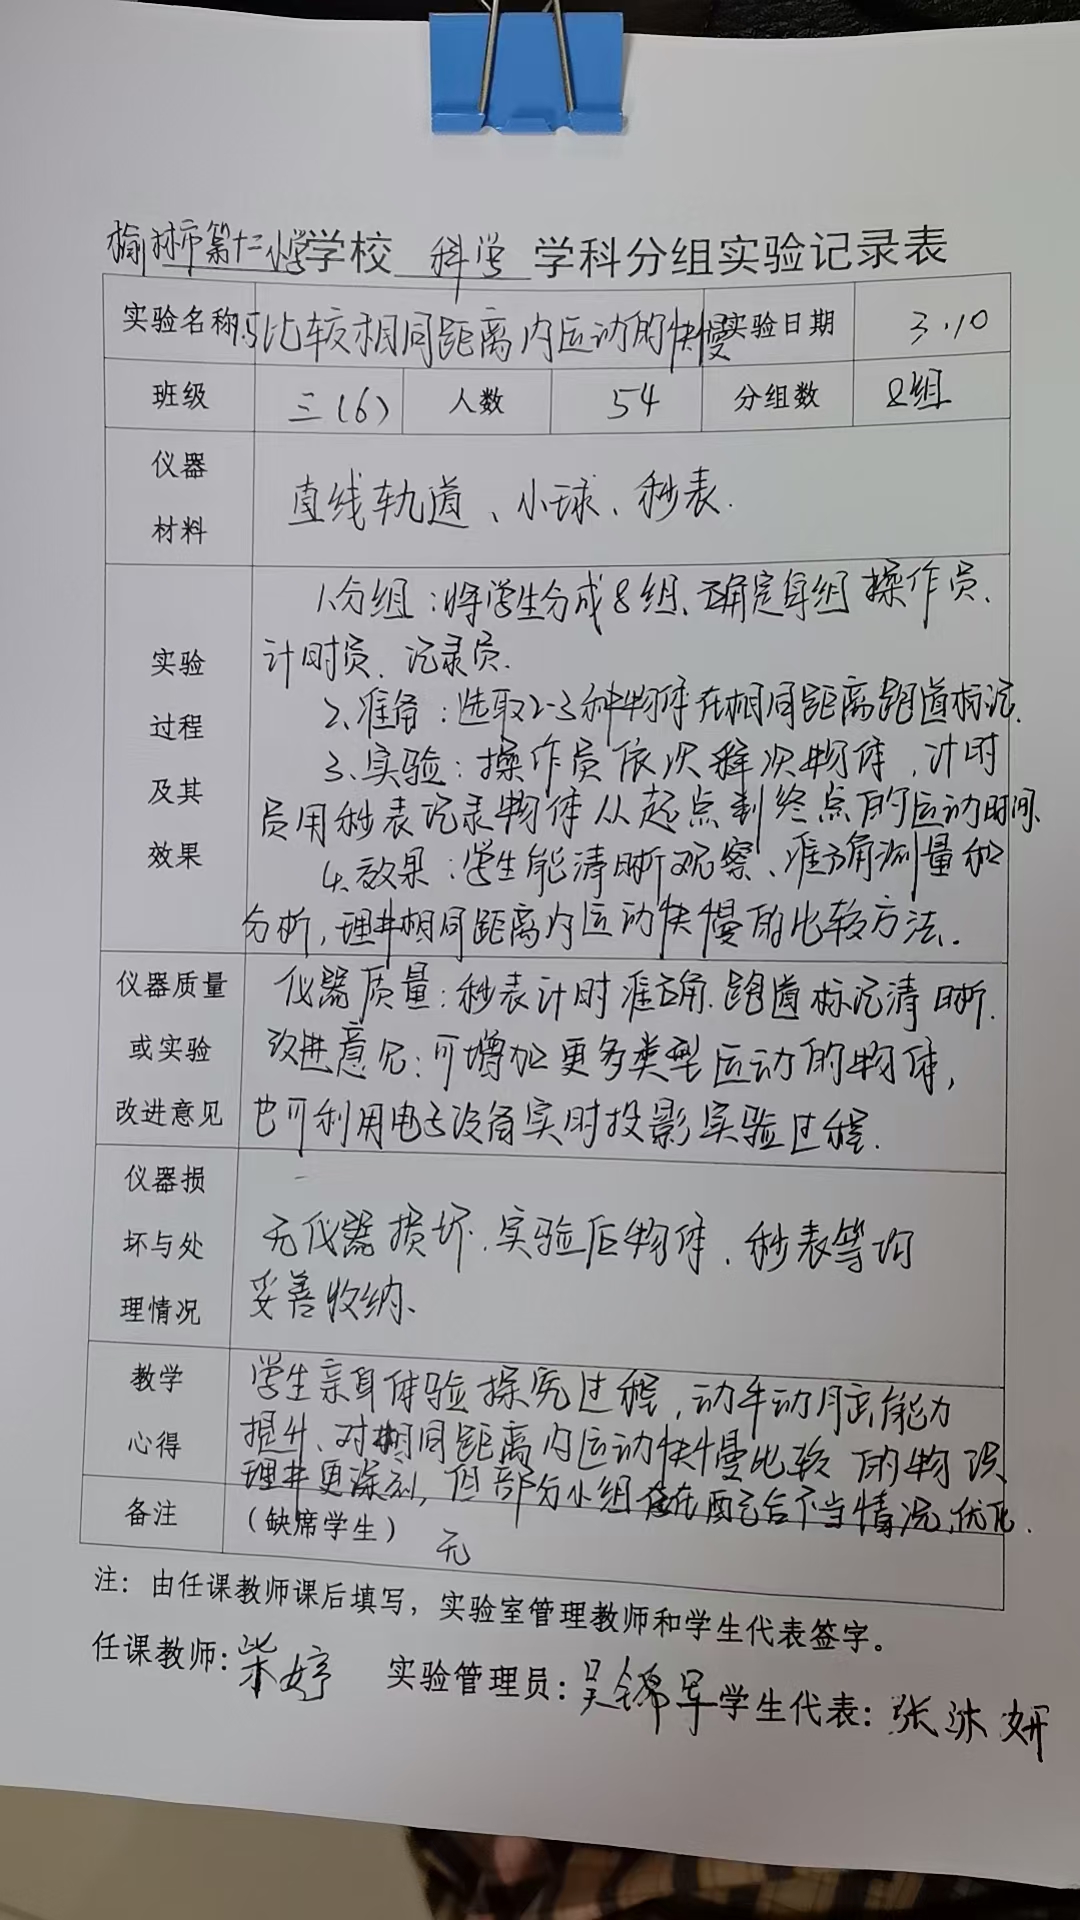 榆林市第十二小学学校 科学 学科分组实验记录表
实验名称 1.5比较相同距离内运动的快慢 实验日期 3.10
班级 三(6) 人数 54 分组数 8组
仪器材料 直线轨道、小球、秒表.
实验过程及其效果
1.分组:将学生分成8组、确定每组操作员、
计时员、记录员.
2.准备:选取2-3种物体在相同距离跑道标记.
3.实验:操作员依次释次物体,计时
员用秒表记录物体从起点到终点的运动时间.
4.效果:学生能清晰观察、准确测量和
分析,理井相同距离内运动快慢的比较方法.
仪器质量或实验改进意见
仪器质量:秒表计时准确.跑道标记清晰.
改进意见:可增加更多类型运动的物体,
也可利用电子设备实时投影实验过程.
仪器损坏与处理情况
无仪器损坏.实验后物体、秒表等均
妥善收纳.
教学心得
学生亲身体验探究过程,动手动脑能力
提升、对相同距离内运动快慢比较的物
理井更深刻,但部分小组存在配合不当情况,优化.
备注 (缺席学生) 无
注:由任课教师课后填写,实验室管理教师和学生代表签字。
任课教师:柴婷 实验管理员:吴锦军 学生代表:张沐妍